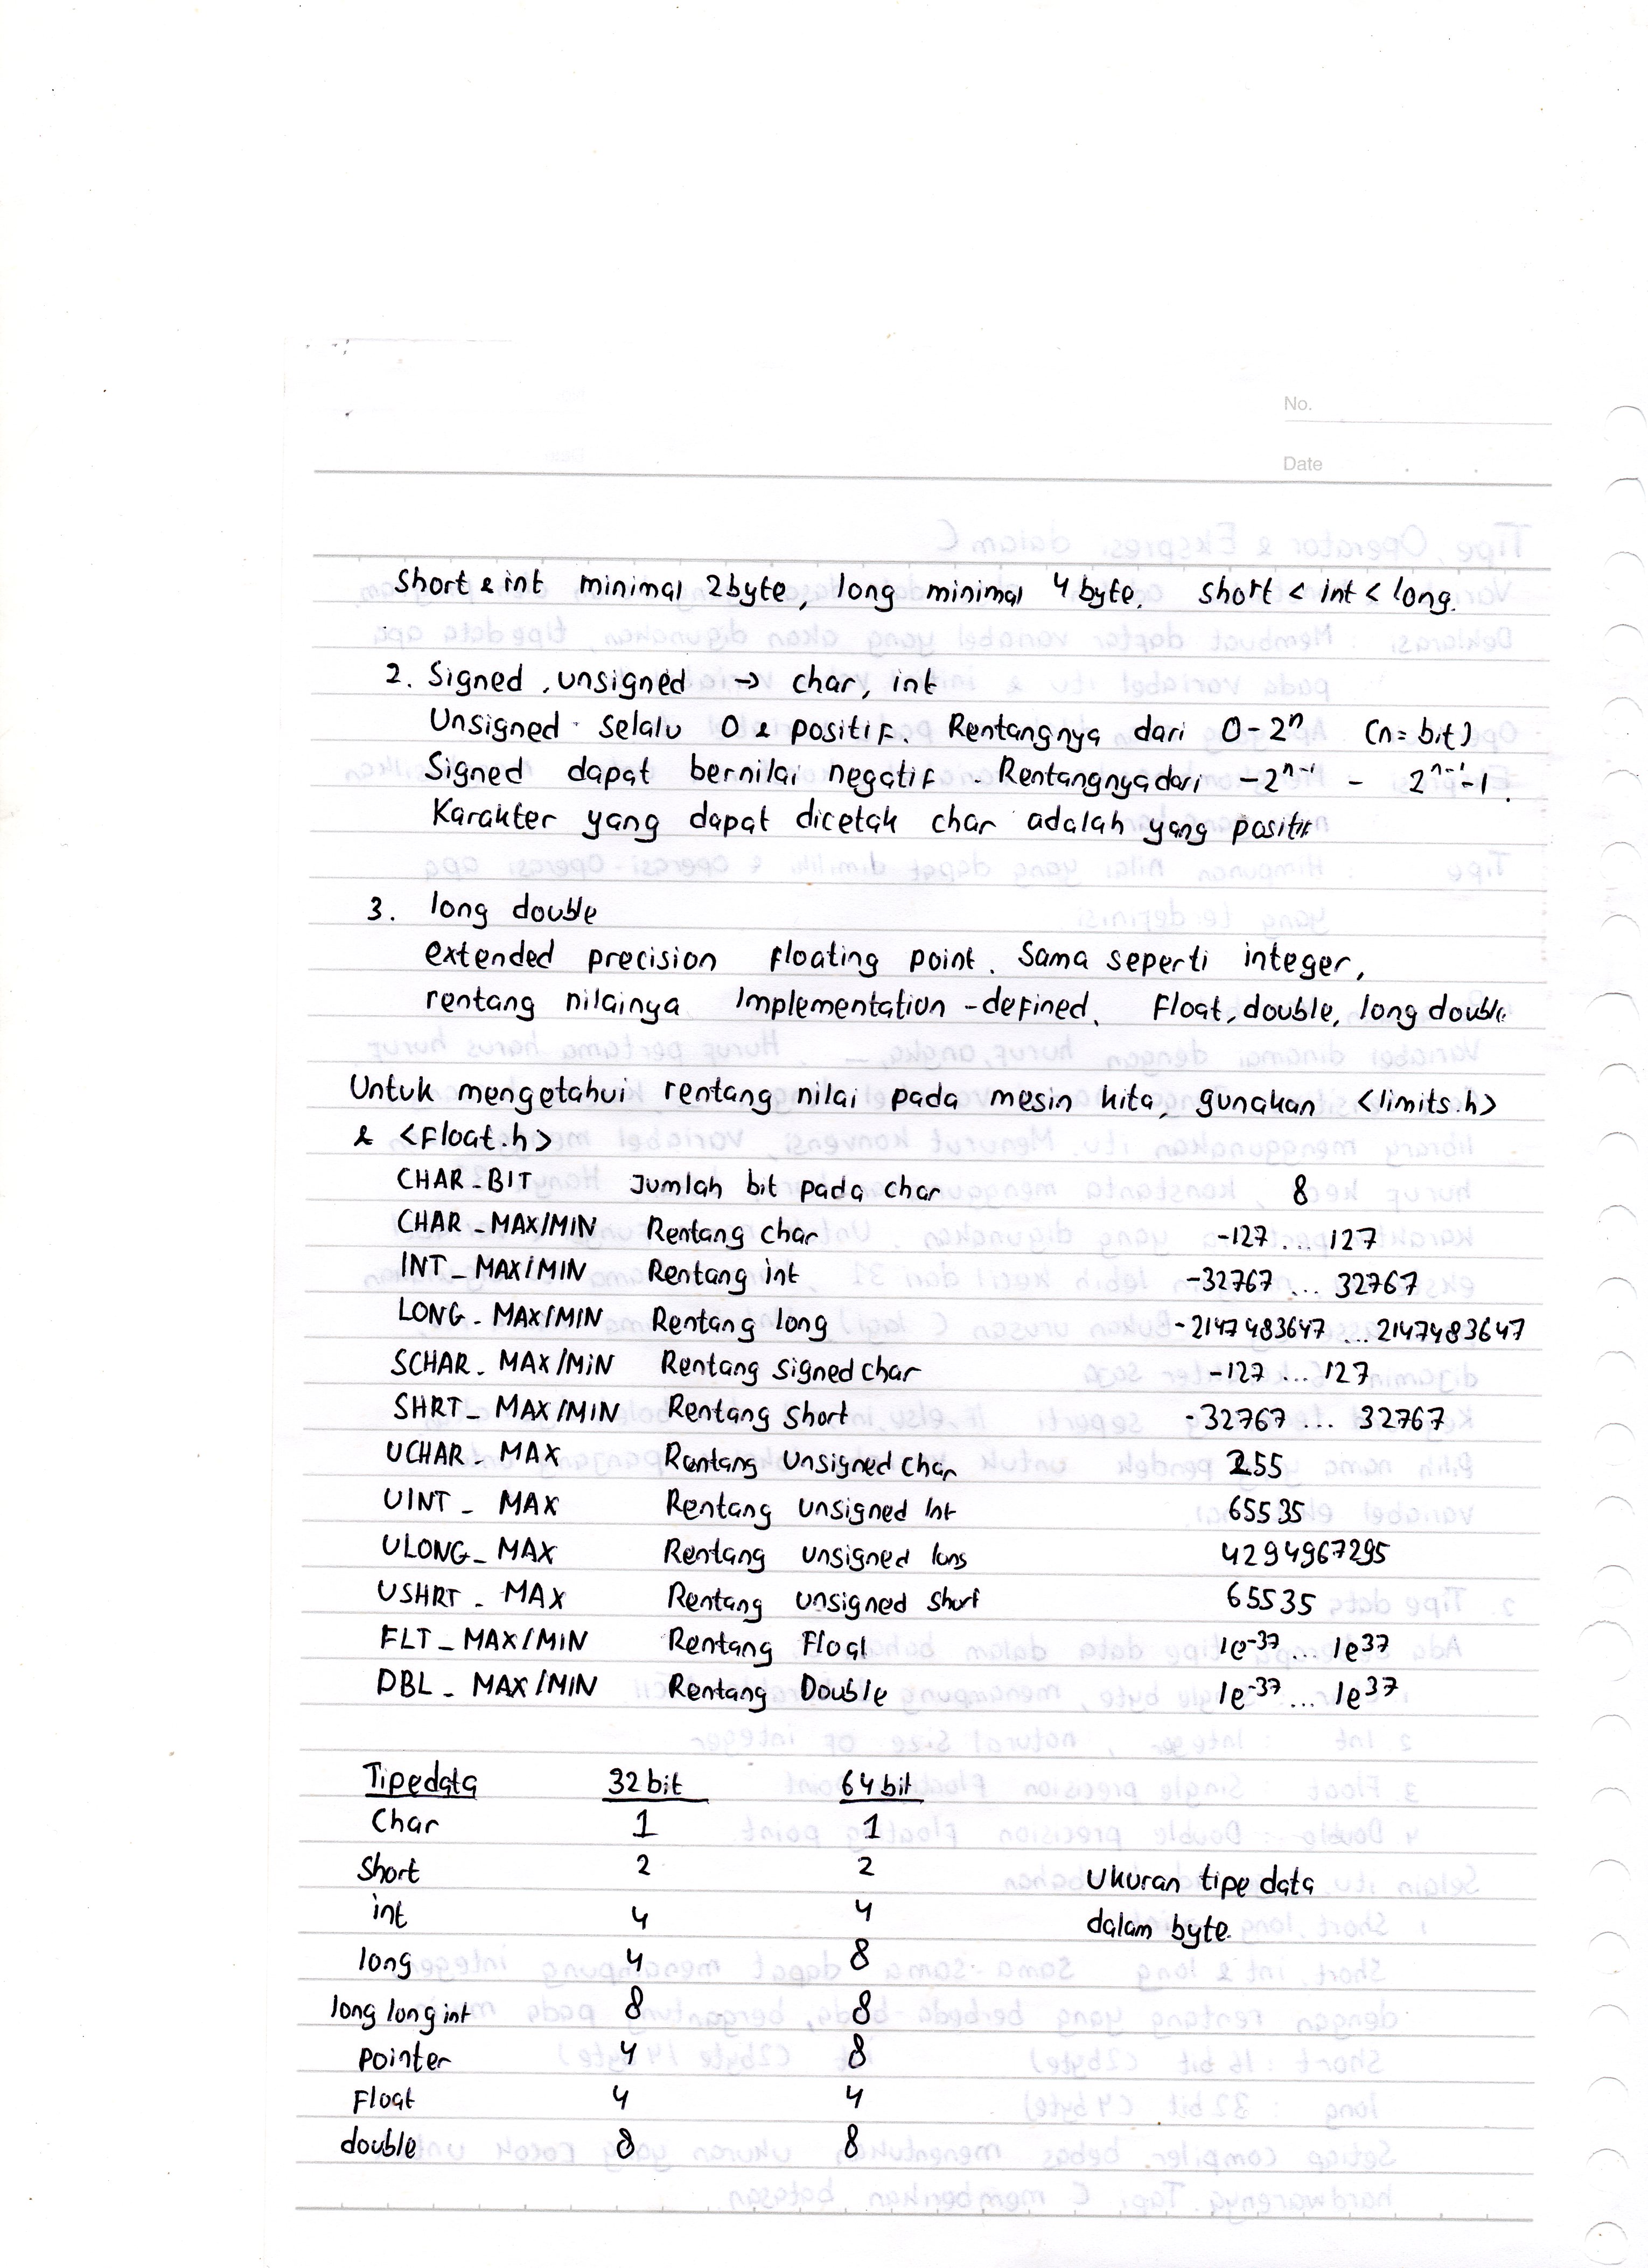 No.
Date
short & int minimal 2byte, long minimal 4 byte. short < int < long.
2. Signed, unsigned → char, int
Unsigned selalu 0 & positif. Rentangnya dari 0 - 2ⁿ (n = bit)
Signed dapat bernilai negatif. Rentangnya dari -2ⁿ⁻¹ - 2ⁿ⁻¹-1.
Karakter yang dapat dicetak char adalah yang positif
3. long double
extended precision floating point. Sama seperti integer,
rentang nilainya implementation-defined. Float, double, long double
Untuk mengetahui rentang nilai pada mesin kita, gunakan <limits.h>
& <Float.h>
CHAR_BIT Jumlah bit pada char 8
CHAR_MAX/MIN Rentang char -127 ... 127
INT_MAX/MIN Rentang int -32767 ... 32767
LONG_MAX/MIN Rentang long -2147483647 ... 2147483647
SCHAR_MAX/MIN Rentang signed char -127 ... 127
SHRT_MAX/MIN Rentang short -32767 ... 32767
UCHAR_MAX Rentang Unsigned char 255
UINT_MAX Rentang unsigned Int 65535
ULONG_MAX Rentang unsigned long 4294967295
USHRT_MAX Rentang unsigned short 65535
FLT_MAX/MIN Rentang Float 1e⁻³⁷ ... 1e³⁷
DBL_MAX/MIN Rentang Double 1e⁻³⁷ ... 1e³⁷
Tipe data 32 bit 64 bit
Char 1 1
Short 2 2 Ukuran tipe data
int 4 4 dalam byte.
long 4 8
long long int 8 8
pointer 4 8
Float 4 4
double 8 8